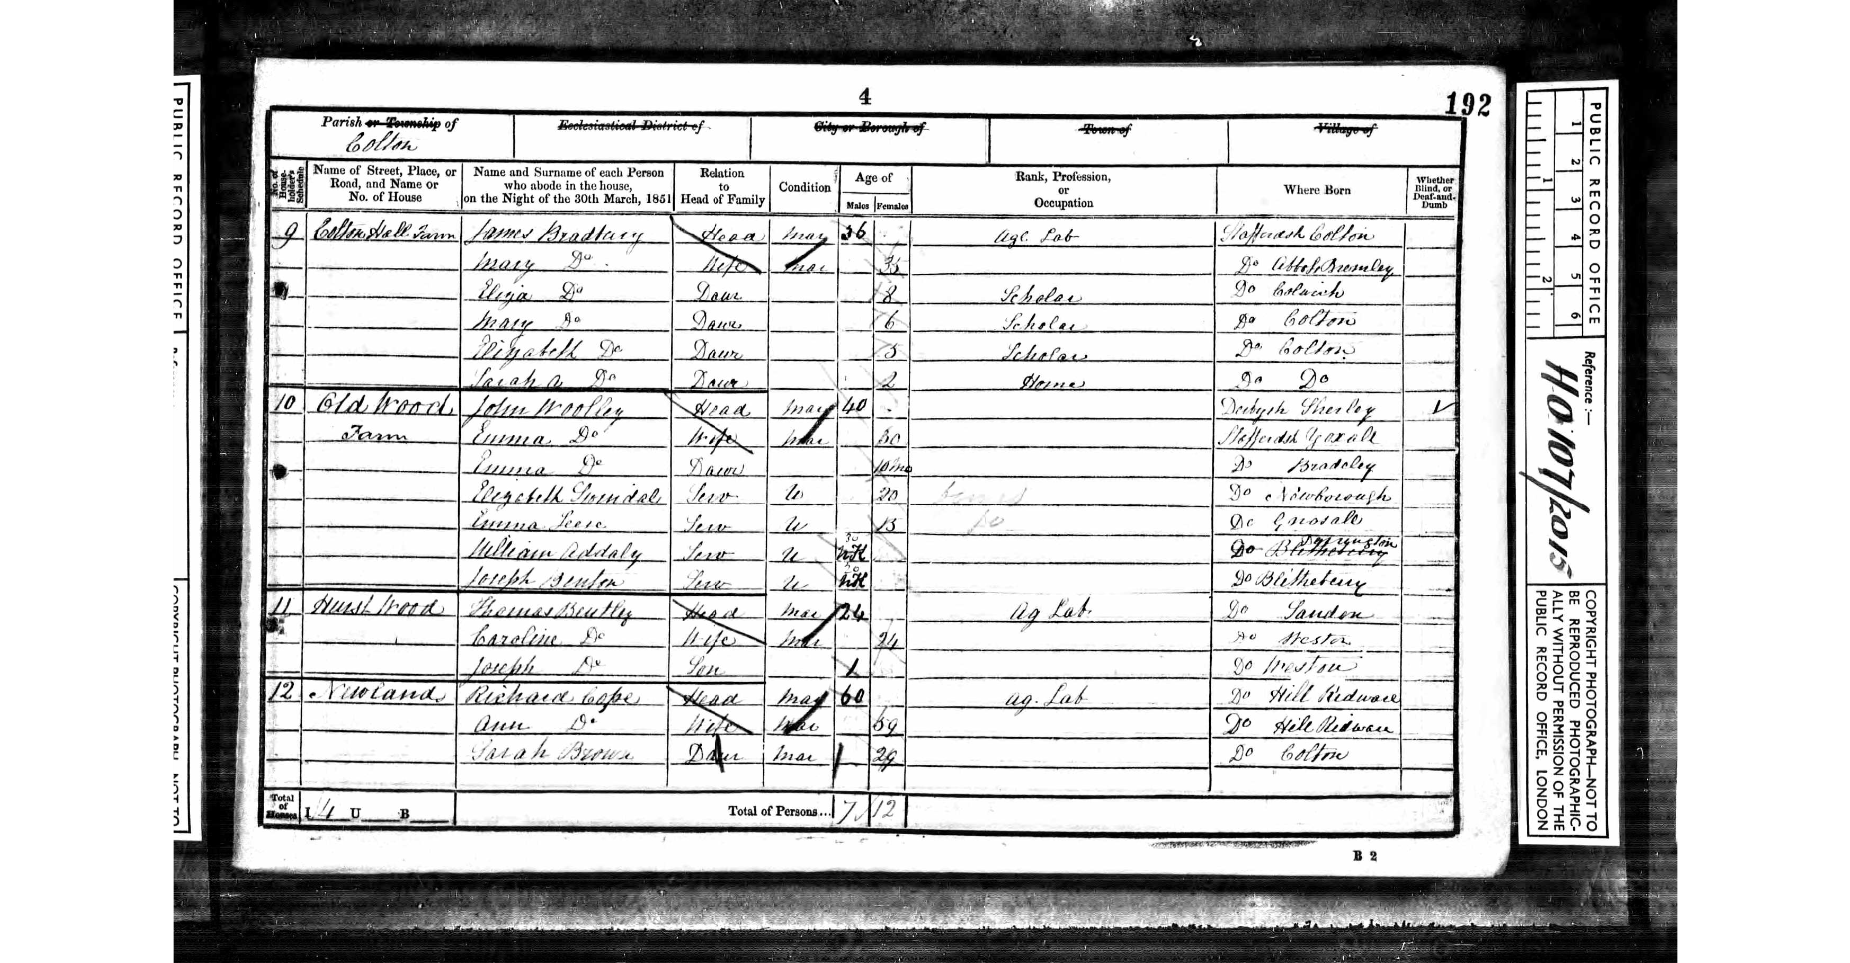 4
192
Parish or Township of
Colton
Ecclesiastical District of
City or Borough of
Town of
Village of
No. of House-holder's Schedule
Name of Street, Place, or Road, and Name or No. of House
Name and Surname of each Person who abode in the house, on the Night of the 30th March, 1851
Relation to Head of Family
Condition
Age of
Males
Females
Rank, Profession, or Occupation
Where Born
Whether Blind, or Deaf-and-Dumb
9 Colton Hall Farm James Bradbury Head Mar 36 Agl. Lab Staffordsh Colton
Mary Do Wife Mar 35 Do Abbots Bromley
Eliza Do Daur 8 Scholar Do Colwich
Mary Do Daur 6 Scholar Do Colton
Elizabeth Do Daur 5 Scholar Do Colton
Sarah A Do Daur 2 Home Do Do
10 Old Wood John Woolley Head Mar 40 Derbysh Shirley
Farm Emma Do Wife Mar 30 Staffordsh Yoxall
Emma Do Daur 10 mo Do Bradeley
Elizabeth Swindale Serv U 20 Do Newborough
Emma Serv U 13 Do Gnosall
William Addaly Serv U NK Do Blitheberry
Joseph Benton Serv U NK Do Blitheberry
11 Hurst Wood Thomas Bentley Head Mar 24 Ag Lab. Do Sandon
Caroline Do Wife Mar 24 Do Weston
Joseph Do Son 1 Do Weston
12 Newlands Richard Cope Head Mar 60 Ag. Lab Do Hill Ridware
Ann Do Wife Mar 59 Do Hill Ridware
Sarah Brown Daur Mar 29 Do Colton
Total of Houses I 4 U B Total of Persons... 7 12
B 2
PUBLIC RECORD OFFICE
1 2 3 4 5 6
1 2
Reference:—
HO 107/2015
COPYRIGHT PHOTOGRAPH—NOT TO BE REPRODUCED PHOTOGRAPHIC-ALLY WITHOUT PERMISSION OF THE PUBLIC RECORD OFFICE, LONDON
PUBLIC RECORD OFFICE
COPYRIGHT PHOTOGRAPH NOT TO